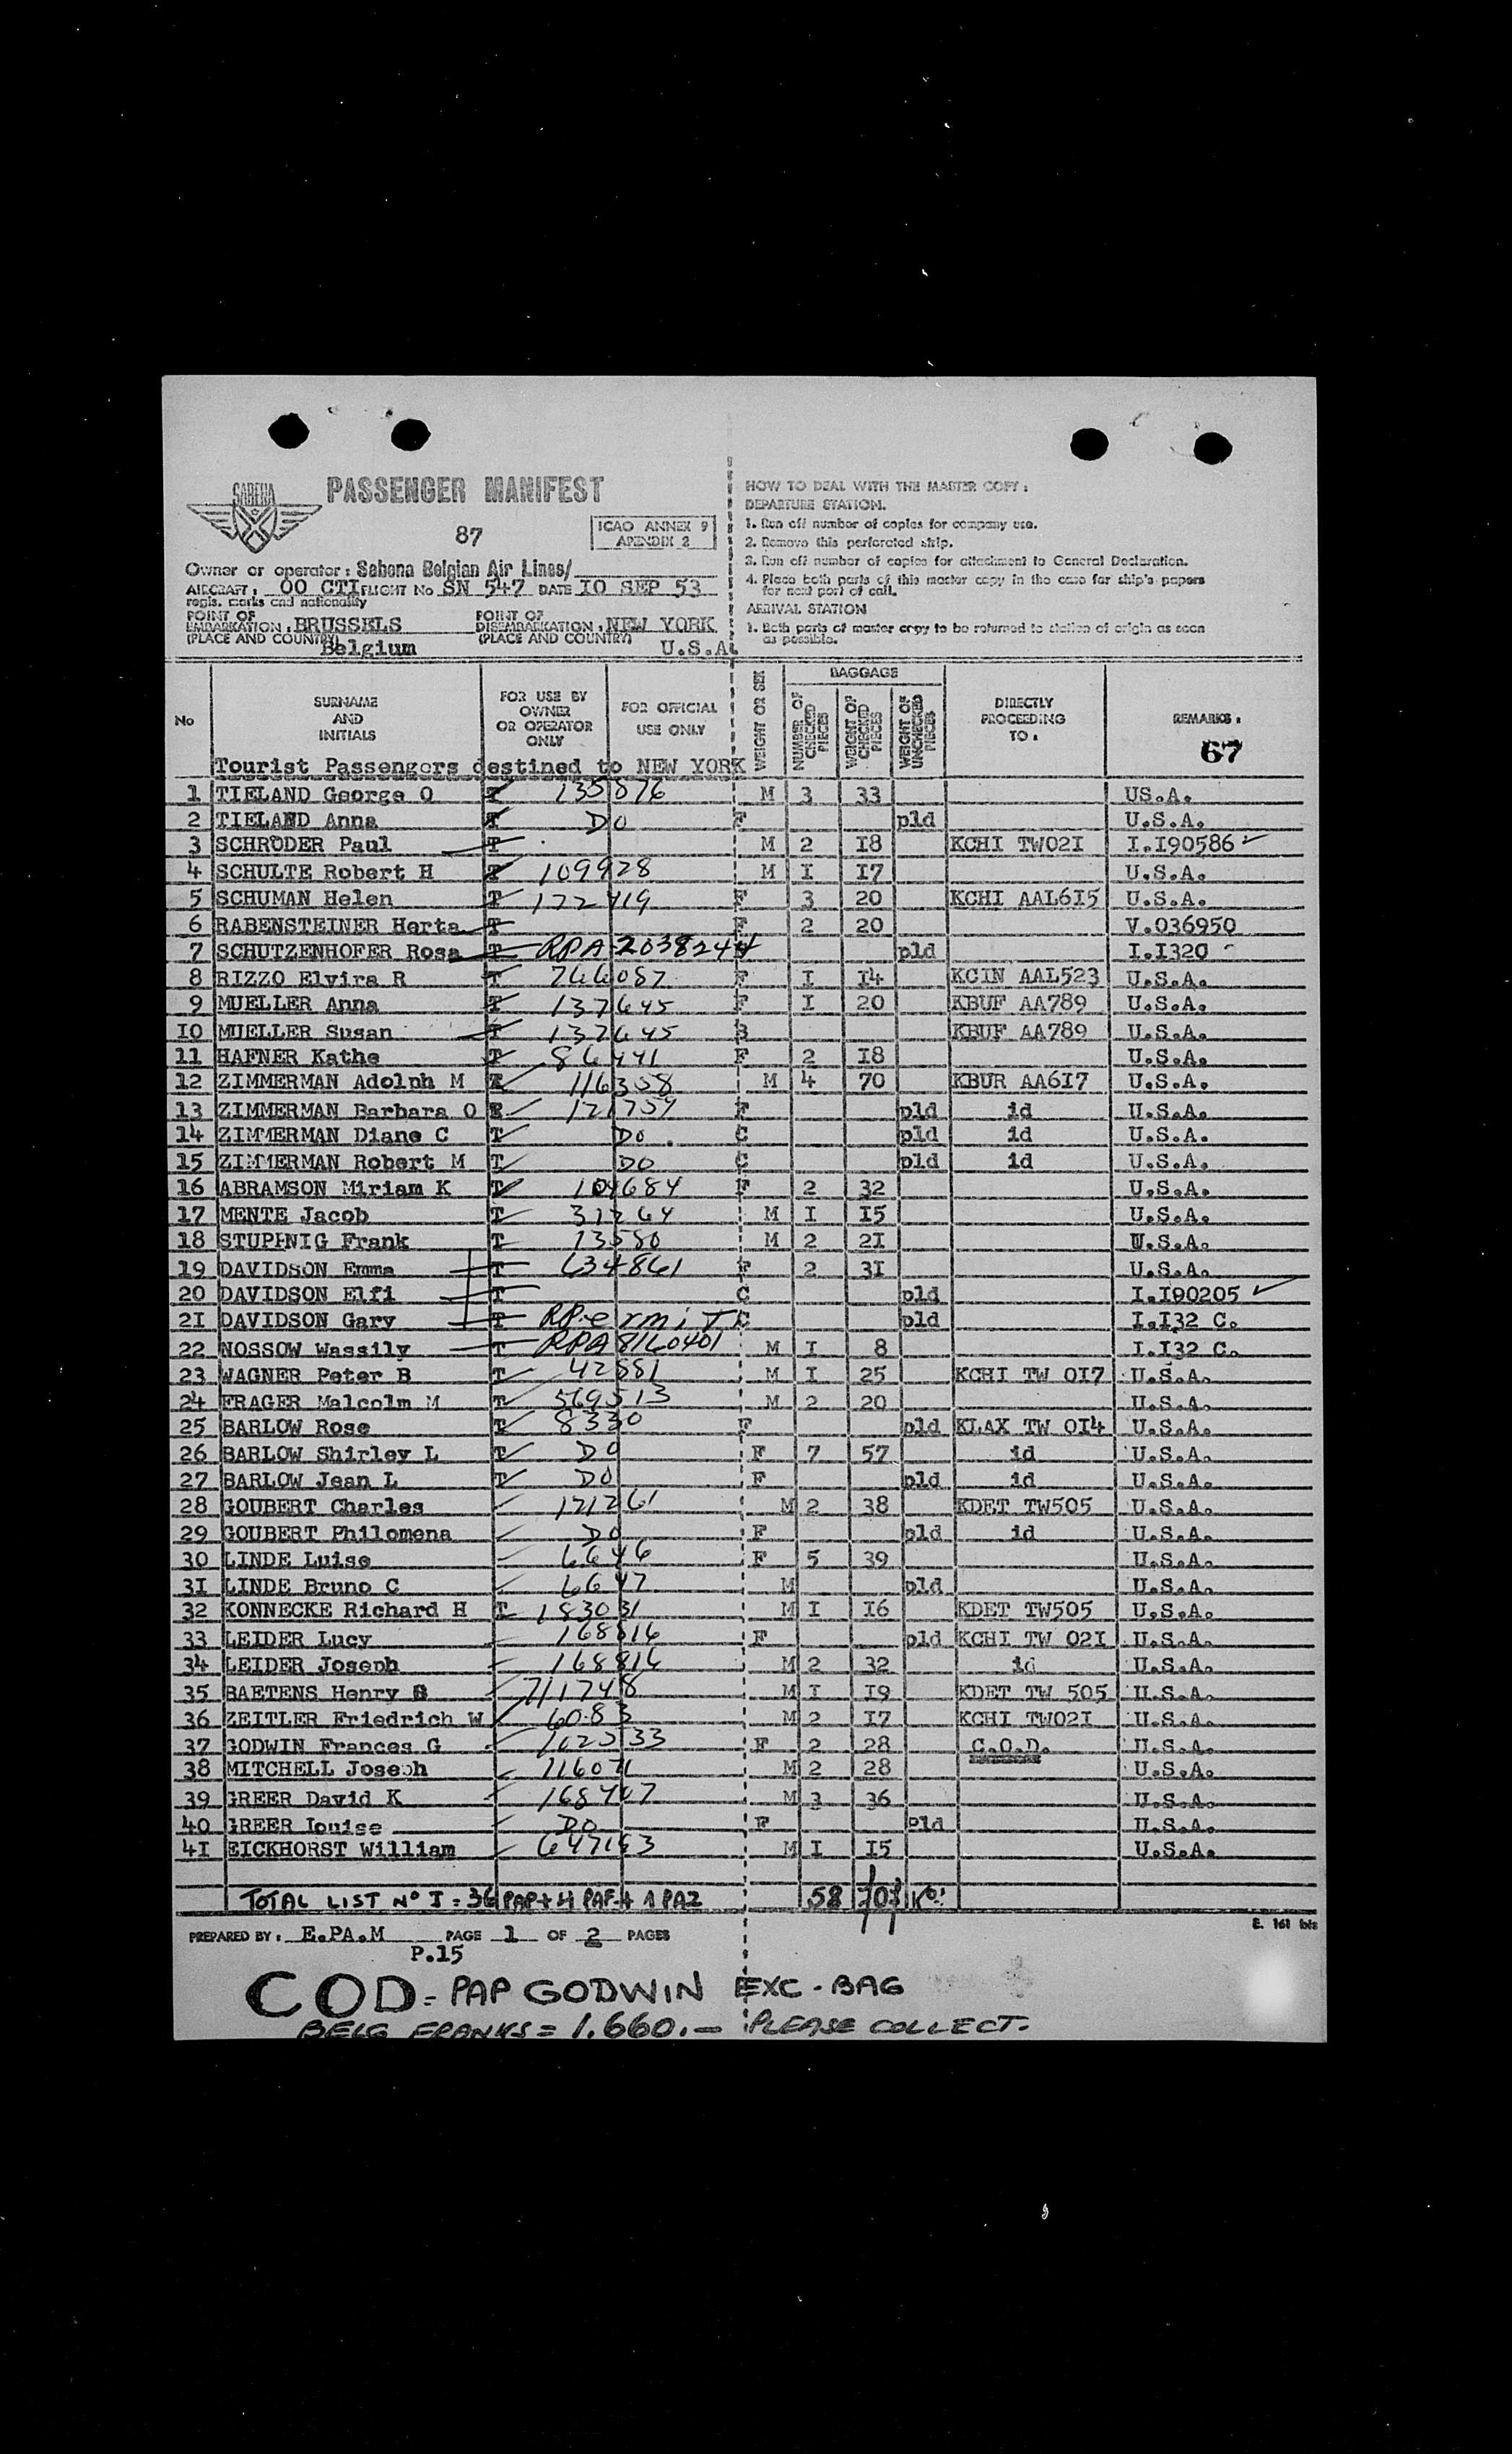 SABENA
PASSENGER MANIFEST
87
ICAO ANNEX 9
APENDIX 2
Owner or operator : Sabena Belgian Air Lines/
AIRCRAFT : OO CTI FLIGHT No SN 547 DATE IO SEP 53
regis. marks and nationality
POINT OF EMBARKATION : BRUSSELS POINT OF DISEMBARKATION : NEW YORK
(PLACE AND COUNTRY) Belgium (PLACE AND COUNTRY) U.S.A.
HOW TO DEAL WITH THE MASTER COPY :
DEPARTURE STATION.
1. Run off number of copies for company use.
2. Remove this perforated strip.
3. Run off number of copies for attachment to General Declaration.
4. Place both parts of this master copy in the case for ship's papers
for next port of call.
ARRIVAL STATION
1. Both parts of master copy to be returned to station of origin as soon
as possible.
No SURNAME AND INITIALS FOR USE BY OWNER OR OPERATOR ONLY FOR OFFICIAL USE ONLY WEIGHT OR SEX BAGGAGE NUMBER OF CHECKED PIECES WEIGHT OF CHECKED PIECES WEIGHT OF UNCHECKED PIECES DIRECTLY PROCEEDING TO : REMARKS :
67
Tourist Passengers destined to NEW YORK
1 TIELAND George O T 135876 M 3 33 US.A.
2 TIELAND Anna T DO F pld U.S.A.
3 SCHRÖDER Paul T M 2 I8 KCHI TW02I I.I90586
4 SCHULTE Robert H T 109928 M I I7 U.S.A.
5 SCHUMAN Helen T 172419 F 3 20 KCHI AAL6I5 U.S.A.
6 RABENSTEINER Herta T F 2 20 V.036950
7 SCHUTZENHOFER Rosa T RPA 2038244 pld I.I320
8 RIZZO Elvira R T 766087 F I I4 KCIN AAL523 U.S.A.
9 MUELLER Anna T 137645 F I 20 KBUF AA789 U.S.A.
IO MUELLER Susan T 137645 B KBUF AA789 U.S.A.
11 HAFNER Kathe T 86441 F 2 I8 U.S.A.
12 ZIMMERMAN Adolph M T 116358 M 4 70 KBUR AA6I7 U.S.A.
13 ZIMMERMAN Barbara O T 121759 F pld id U.S.A.
14 ZIMMERMAN Diane C T DO C pld id U.S.A.
15 ZIMMERMAN Robert M T DO C pld id U.S.A.
16 ABRAMSON Miriam K T 104684 F 2 32 U.S.A.
17 MENTE Jacob T 31264 M I I5 U.S.A.
18 STUPHNIG Frank T 13580 M 2 2I U.S.A.
19 DAVIDSON Emma T 634861 F 2 3I U.S.A.
20 DAVIDSON Elfi T C pld I.I90205
2I DAVIDSON Gary T RPermit C pld I.I32 C.
22 NOSSOW Wassily T RPA 8160401 M I 8 I.I32 C.
23 WAGNER Peter B T 42881 M I 25 KCHI TW 0I7 U.S.A.
24 FRAGER Malcolm M T 569513 M 2 20 U.S.A.
25 BARLOW Rose T 8330 F pld KLAX TW 0I4 U.S.A.
26 BARLOW Shirley L T DO F 7 57 id U.S.A.
27 BARLOW Jean L T DO F pld id U.S.A.
28 GOUBERT Charles 121261 M 2 38 KDET TW505 U.S.A.
29 GOUBERT Philomena DO F pld id U.S.A.
30 LINDE Luise 6646 F 5 39 U.S.A.
3I LINDE Bruno C 6647 M pld U.S.A.
32 KONNECKE Richard H T 183031 M I I6 KDET TW505 U.S.A.
33 LEIDER Lucy 168816 F pld KCHI TW 02I U.S.A.
34 LEIDER Joseph 168816 M 2 32 id U.S.A.
35 BAETENS Henry B 711748 M I I9 KDET TW 505 U.S.A.
36 ZEITLER Friedrich W 6083 M 2 I7 KCHI TW02I U.S.A.
37 GODWIN Frances G F 2 28 C.O.D. U.S.A.
38 MITCHELL Joseph 116071 M 2 28 U.S.A.
39 GREER David K 168407 M 3 36 U.S.A.
40 GREER Louise DO F pld U.S.A.
4I EICKHORST William 647163 M I I5 U.S.A.
TOTAL LIST N° I = 36 PAP + 4 PAF + 1 PAZ 58 707 K°:
PREPARED BY : E.PA.M PAGE 1 OF 2 PAGES
P.15
E. 161 bis
COD = PAP GODWIN EXC - BAG
BELG FRANKS = 1.660.- PLEASE COLLECT.